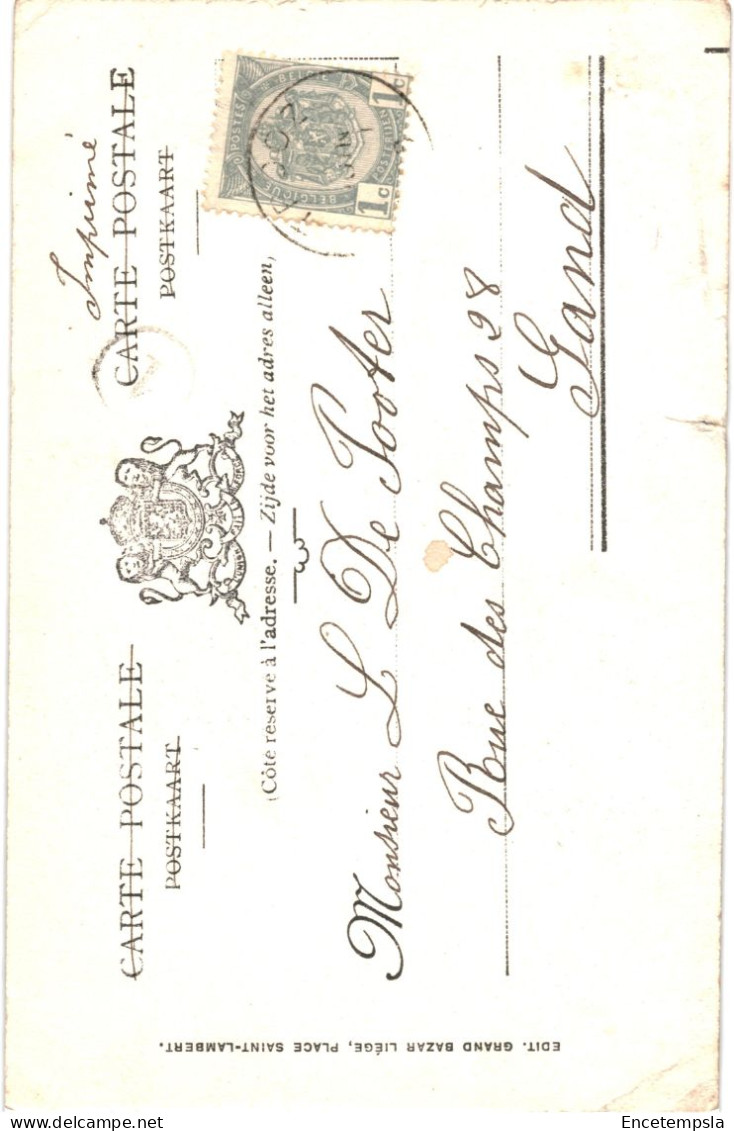 Imprimé
CARTE POSTALE
CARTE POSTALE
POSTKAART
POSTKAART
POSTES BELGIQUE
1c
1c
(Côté réservé à l'adresse. — Zijde voor het adres alleen)
Monsieur L De Pooter
Rue des Champs 98
Gand
EDIT. GRAND BAZAR LIÉGE, PLACE SAINT-LAMBERT.
Encetempsla